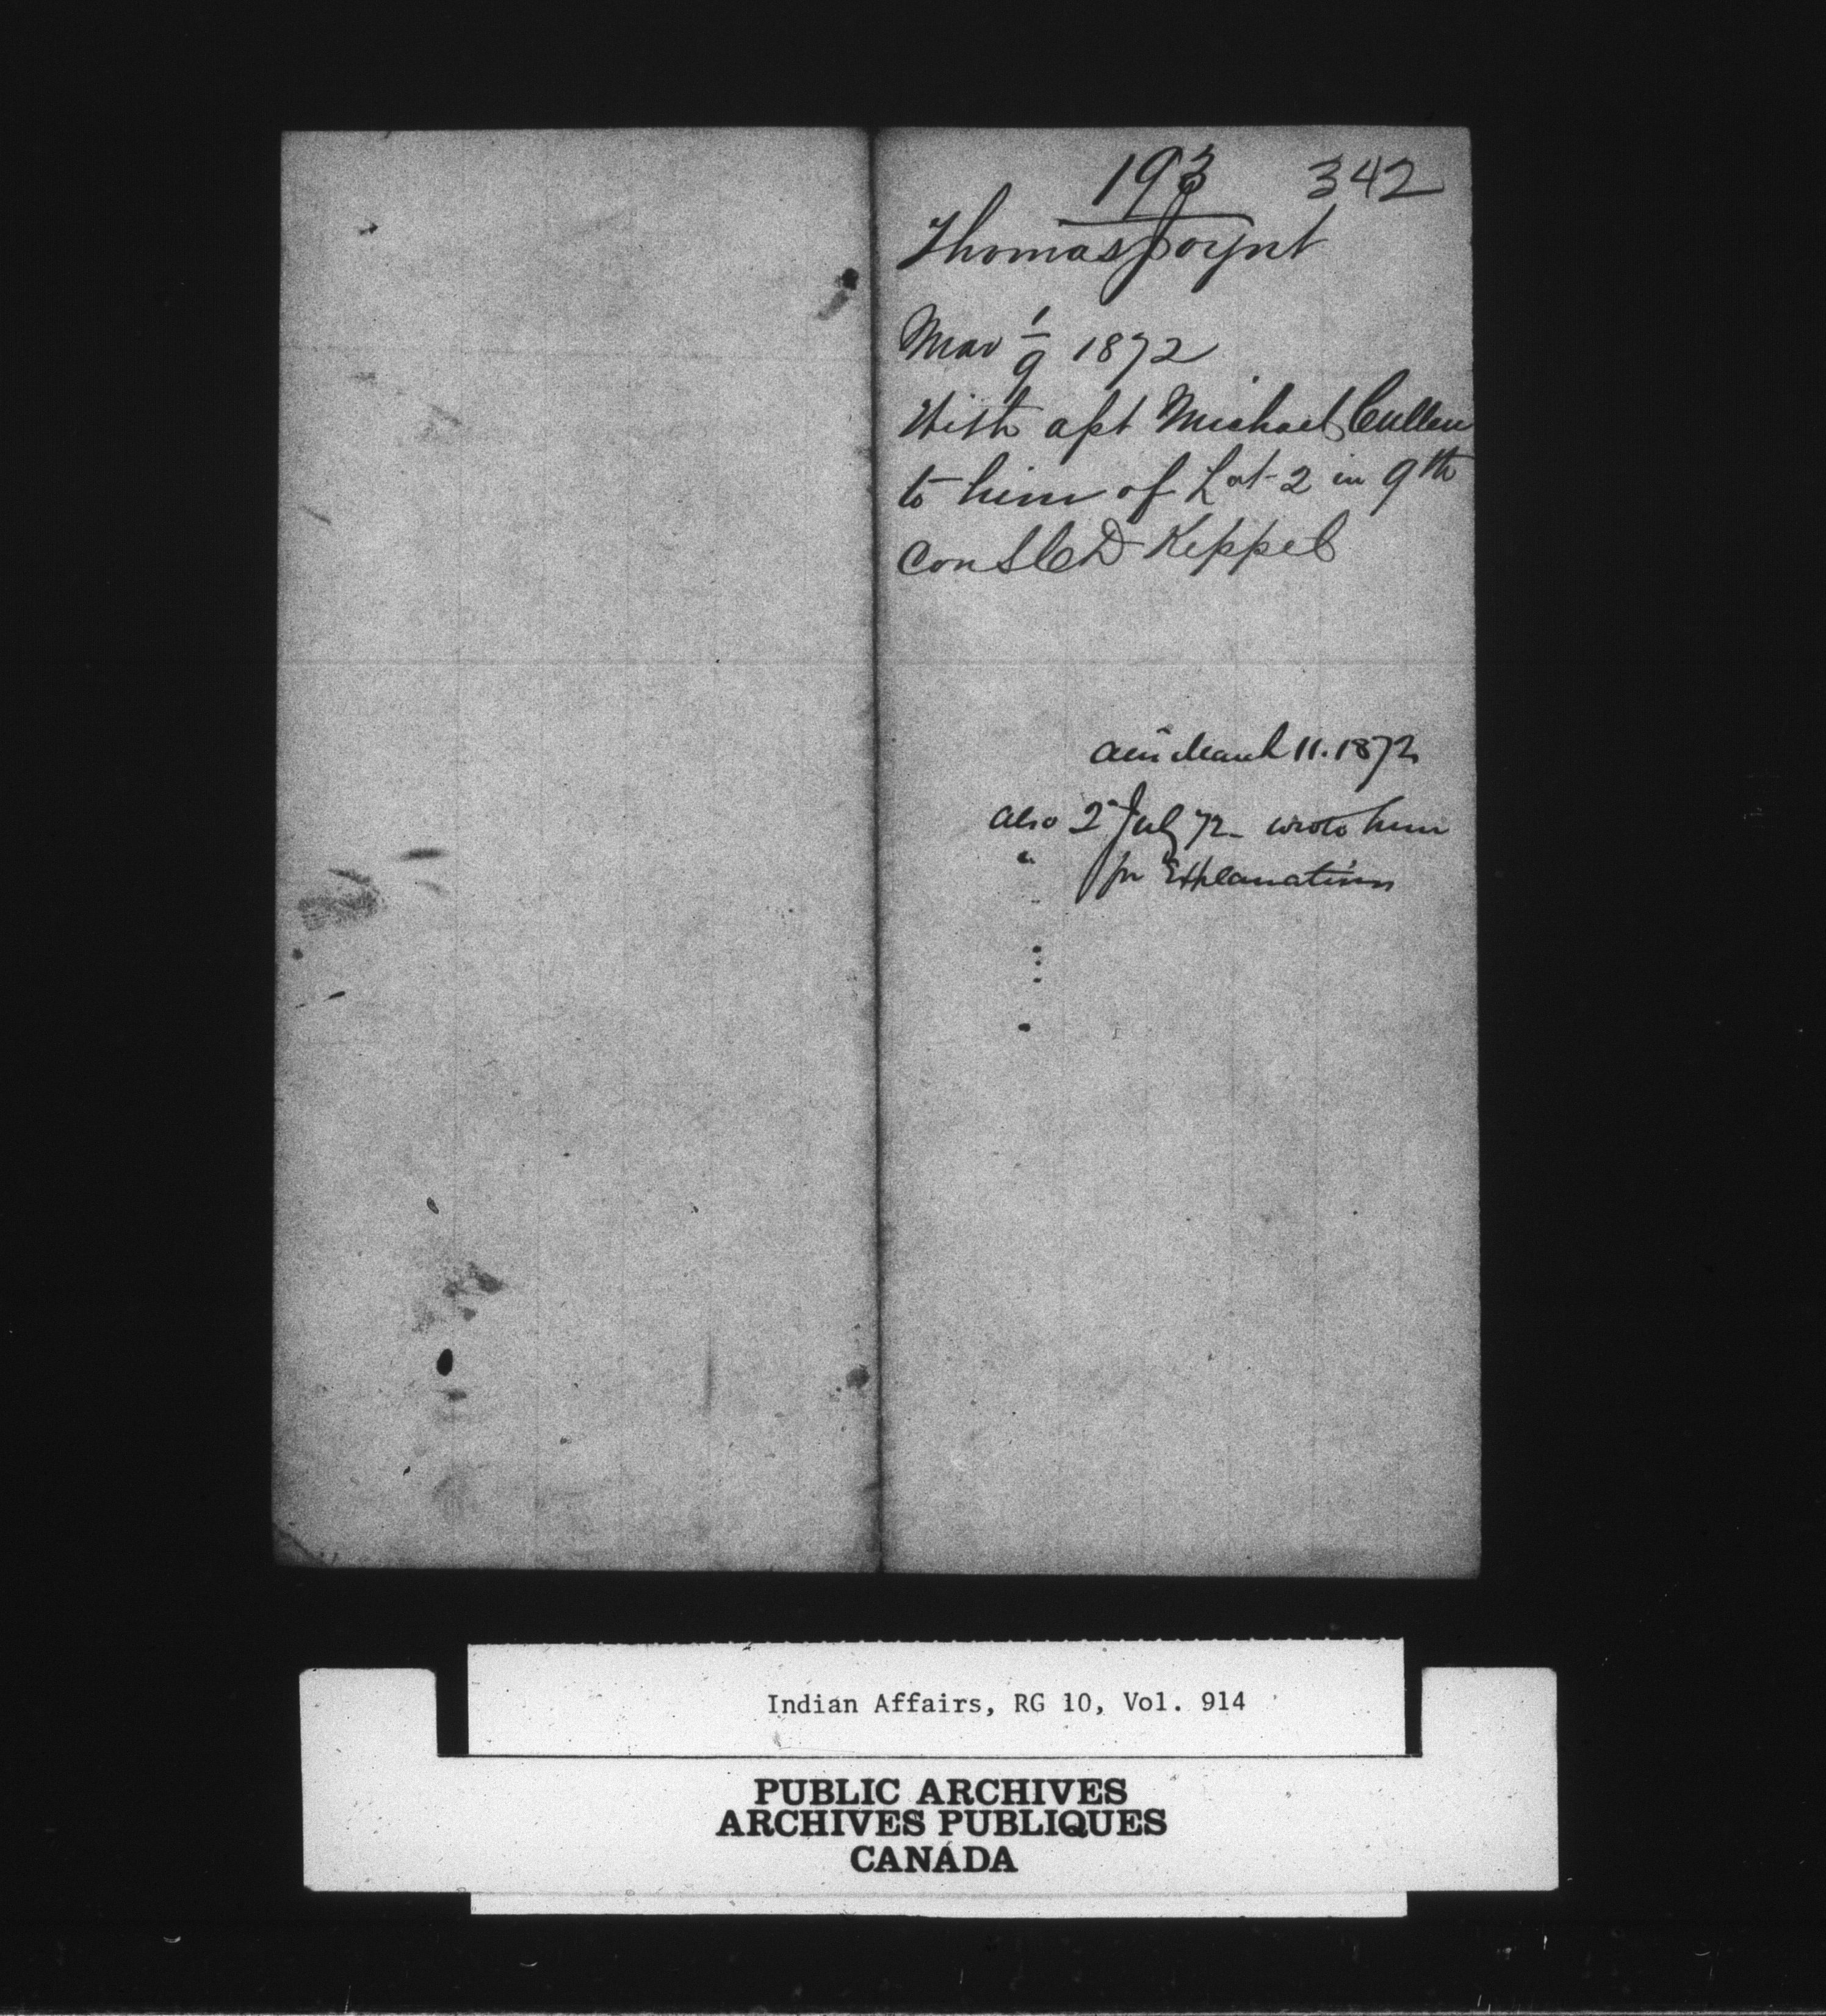 193 342
Thomas Joynt
Mar 1/9 1872
With asst Michael Cullen
to him of Lot 2 in 9th
Con S C D Keppel
March 11. 1872
Also 2 July 72 - wrote him
for Explanation
Indian Affairs, RG 10, Vol. 914
PUBLIC ARCHIVES
ARCHIVES PUBLIQUES
CANADA